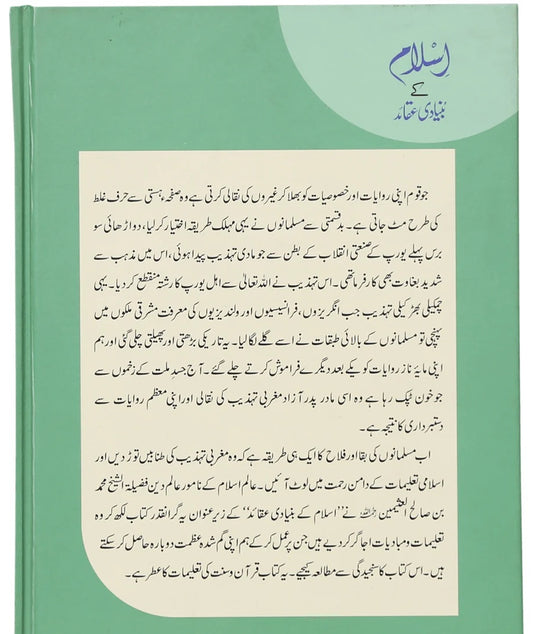 اِسْلام
کے
بُنیادی عقائد
جو قوم اپنی روایات اور خصوصیات کو بھلا کر غیروں کی نقالی کرتی ہے وہ صفحۂ ہستی سے حرف غلط
کی طرح مٹ جاتی ہے۔ بدقسمتی سے مسلمانوں نے یہی مہلک طریقہ اختیار کر لیا، دو اڑھائی سو
برس پہلے یورپ کے صنعتی انقلاب کے بطن سے جو مادی تہذیب پیدا ہوئی، اس میں مذہب سے
شدید بغاوت بھی کارفرما تھی۔ اس تہذیب نے اللہ تعالیٰ سے اہل یورپ کا رشتہ منقطع کر دیا۔ یہی
چمکیلی بھڑکیلی تہذیب جب انگریزوں، فرانسیسیوں اور ولندیزیوں کی معرفت مشرقی ملکوں میں
پہنچی تو مسلمانوں کے بالائی طبقات نے اسے گلے لگا لیا۔ یہ تاریکی بڑھتی اور پھیلتی چلی گئی اور ہم
اپنی مایۂ ناز روایات کو یکے بعد دیگرے فراموش کرتے چلے گئے۔ آج جسد ملت کے زخموں سے
جو خون ٹپک رہا ہے وہ اسی مادر پدر آزاد مغربی تہذیب کی نقالی اور اپنی معظم روایات سے
دستبرداری کا نتیجہ ہے۔
اب مسلمانوں کی بقا اور فلاح کا ایک ہی طریقہ ہے کہ وہ مغربی تہذیب کی طنابیں توڑ دیں اور
اسلامی تعلیمات کے دامن رحمت میں لوٹ آئیں۔ عالم اسلام کے نامور عالم دین فضیلۃ الشیخ محمد
بن صالح العثیمین رحمہ اللہ نے ’’اسلام کے بنیادی عقائد‘‘ کے زیر عنوان یہ گرانقدر کتاب لکھ کر وہ
تعلیمات و مبادیات اجاگر کر دیے ہیں جن پر عمل کر کے ہم اپنی گم شدہ عظمت دوبارہ حاصل کر سکتے
ہیں۔ اس کتاب کا سنجیدگی سے مطالعہ کیجیے۔ یہ کتاب قرآن و سنت کی تعلیمات کا عطر ہے۔